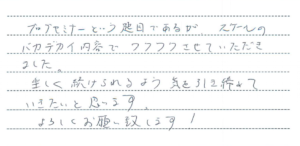 プロブセミナーという題目であるが、スケールの
バカデカイ内容でワクワクさせていただき
ました。
楽しく続けられるよう気を引き締めて
いきたいと思います。
よろしくお願い致します！